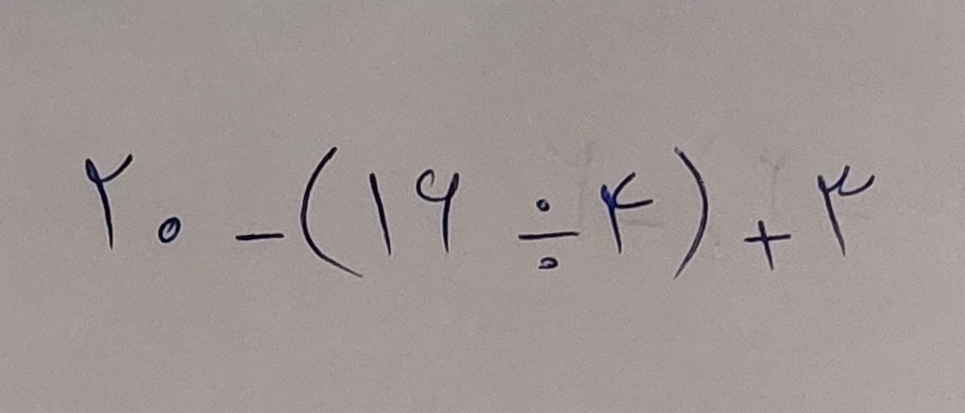 ۲۰ - (۱۶ ÷ ۴) + ۳